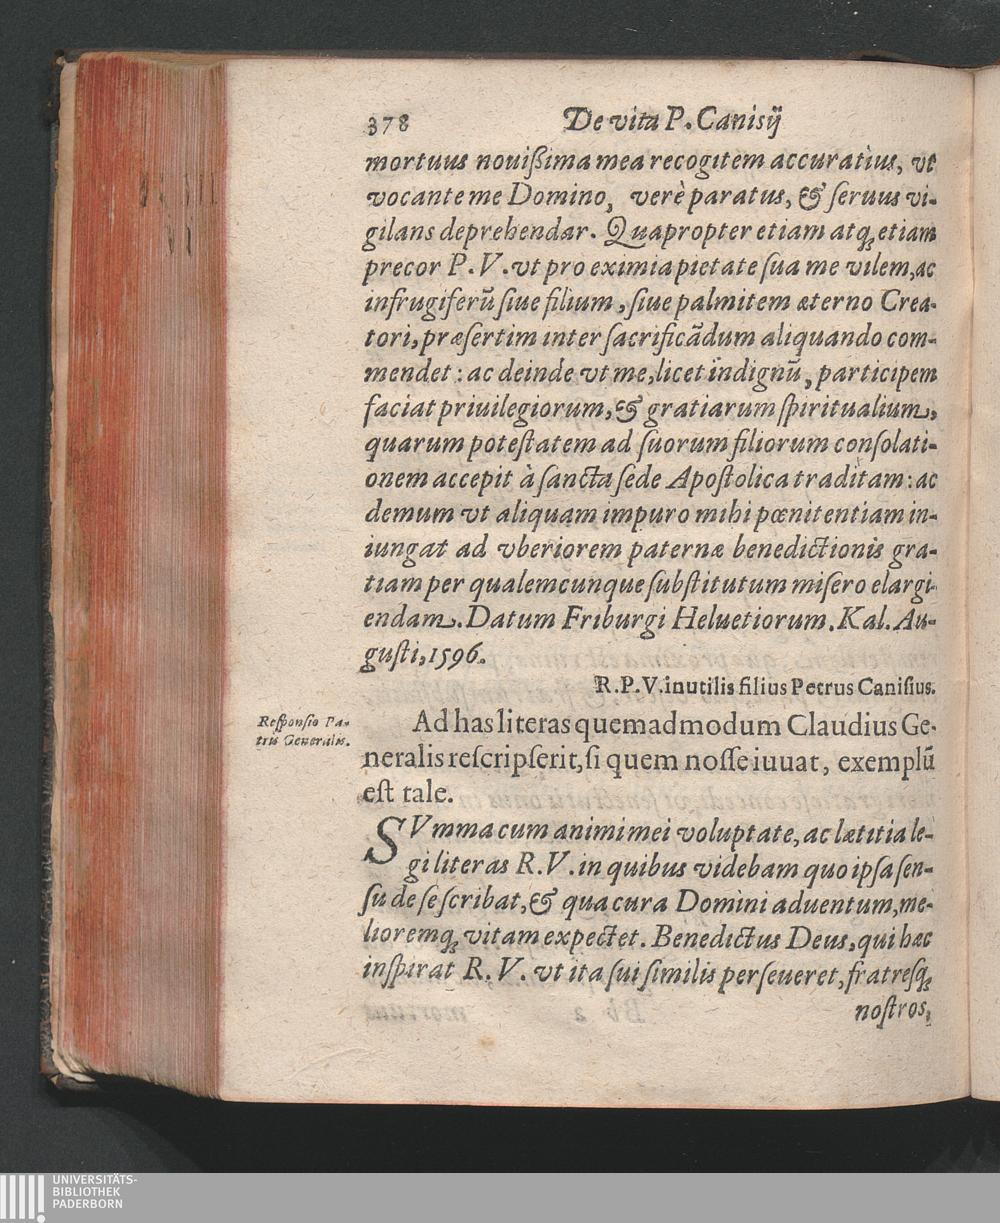 378 De vita P. Canisij
mortuus nouißima mea recogitem accuratius, vt
vocante me Domino, verè paratus, & ſeruus vi-
gilans deprehendar. Quapropter etiam atq; etiam
precor P. V. vt pro eximia pietate ſua me vilem, ac
infrugiferũ ſiue filium, ſiue palmitem æterno Crea-
tori, præſertim inter ſacrificãdum aliquando com-
mendet: ac deinde vt me, licet indignũ, participem
faciat priuilegiorum, & gratiarum ſpiritualium,
quarum poteſtatem ad ſuorum filiorum conſolati-
onem accepit à ſancta ſede Apoſtolica traditam: ac
demum vt aliquam impuro mihi pœnitentiam in-
iungat ad vberiorem paternæ benedictionis gra-
tiam per qualemcunque ſubſtitutum miſero elargi-
endam. Datum Friburgi Heluetiorum. Kal. Au-
guſti, 1596.
R. P. V. inutilis filius Petrus Caniſius.
Reſponſio Pa-
tris Generalis.
Ad has literas quemadmodum Claudius Ge-
neralis reſcripſerit, ſi quem noſſe iuuat, exemplũ
eſt tale.
SVmma cum animi mei voluptate, ac lætitia le-
gi literas R. V. in quibus videbam quo ipſa ſen-
ſu de ſe ſcribat, & qua cura Domini aduentum, me-
lioremq; vitam expectet. Benedictus Deus, qui hæc
inſpirat R. V. vt ita ſui ſimilis perſeueret, fratreſq;
noſtros,
UNIVERSITÄTS-
BIBLIOTHEK
PADERBORN